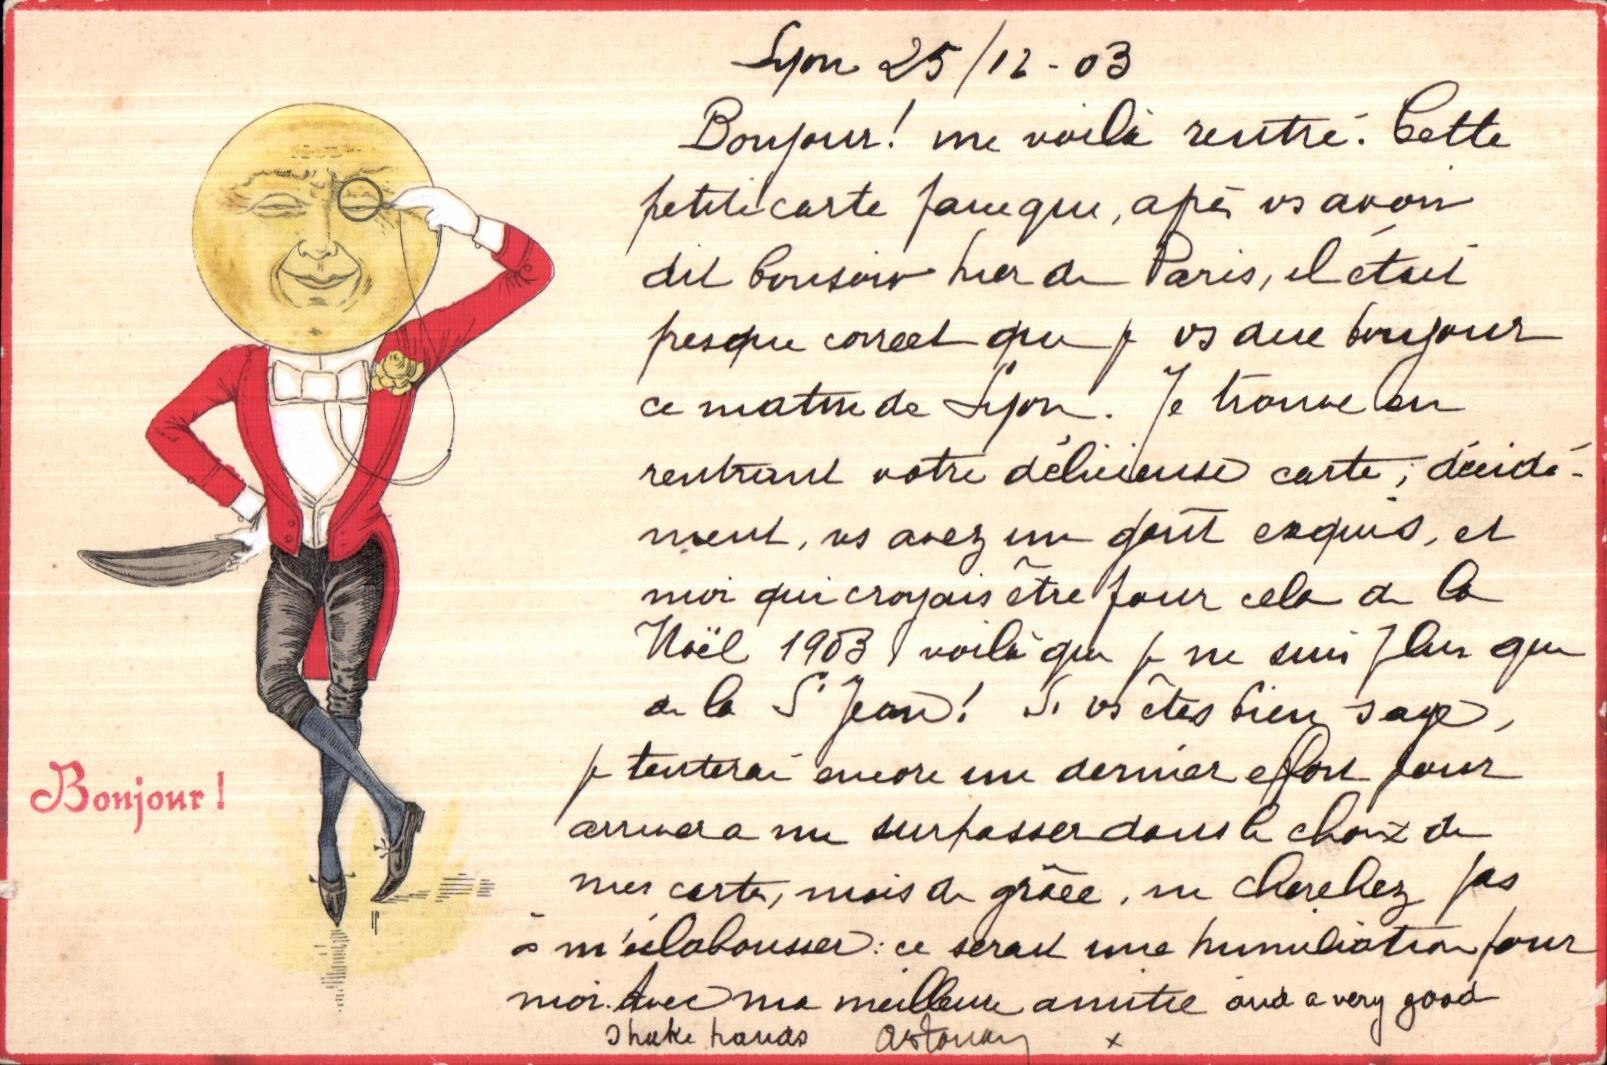 Lyon 25/12-03
Bonjour! me voilà rentré. Cette
petite carte parceque, après vs avoir
dit bonsoir hier de Paris, il était
presque correct que je vs dise bonjour
ce matin de Lyon. Je trouve en
rentrant votre délicieuse carte; décidé-
ment, vs avez un goût exquis, et
moi qui croyais être pour cela de la
Noël 1903 voilà que je ne suis plus que
de la St Jean! Si vs êtes bien sage,
je tenterai encore un dernier effort pour
arriver a me surpasser dans le choix de
mes cartes, mais de grâce, ne cherchez pas
à m'éclabousser: ce serait une humiliation pour
moi. Avec ma meilleure amitié and a very good
Shake hands
Bonjour!